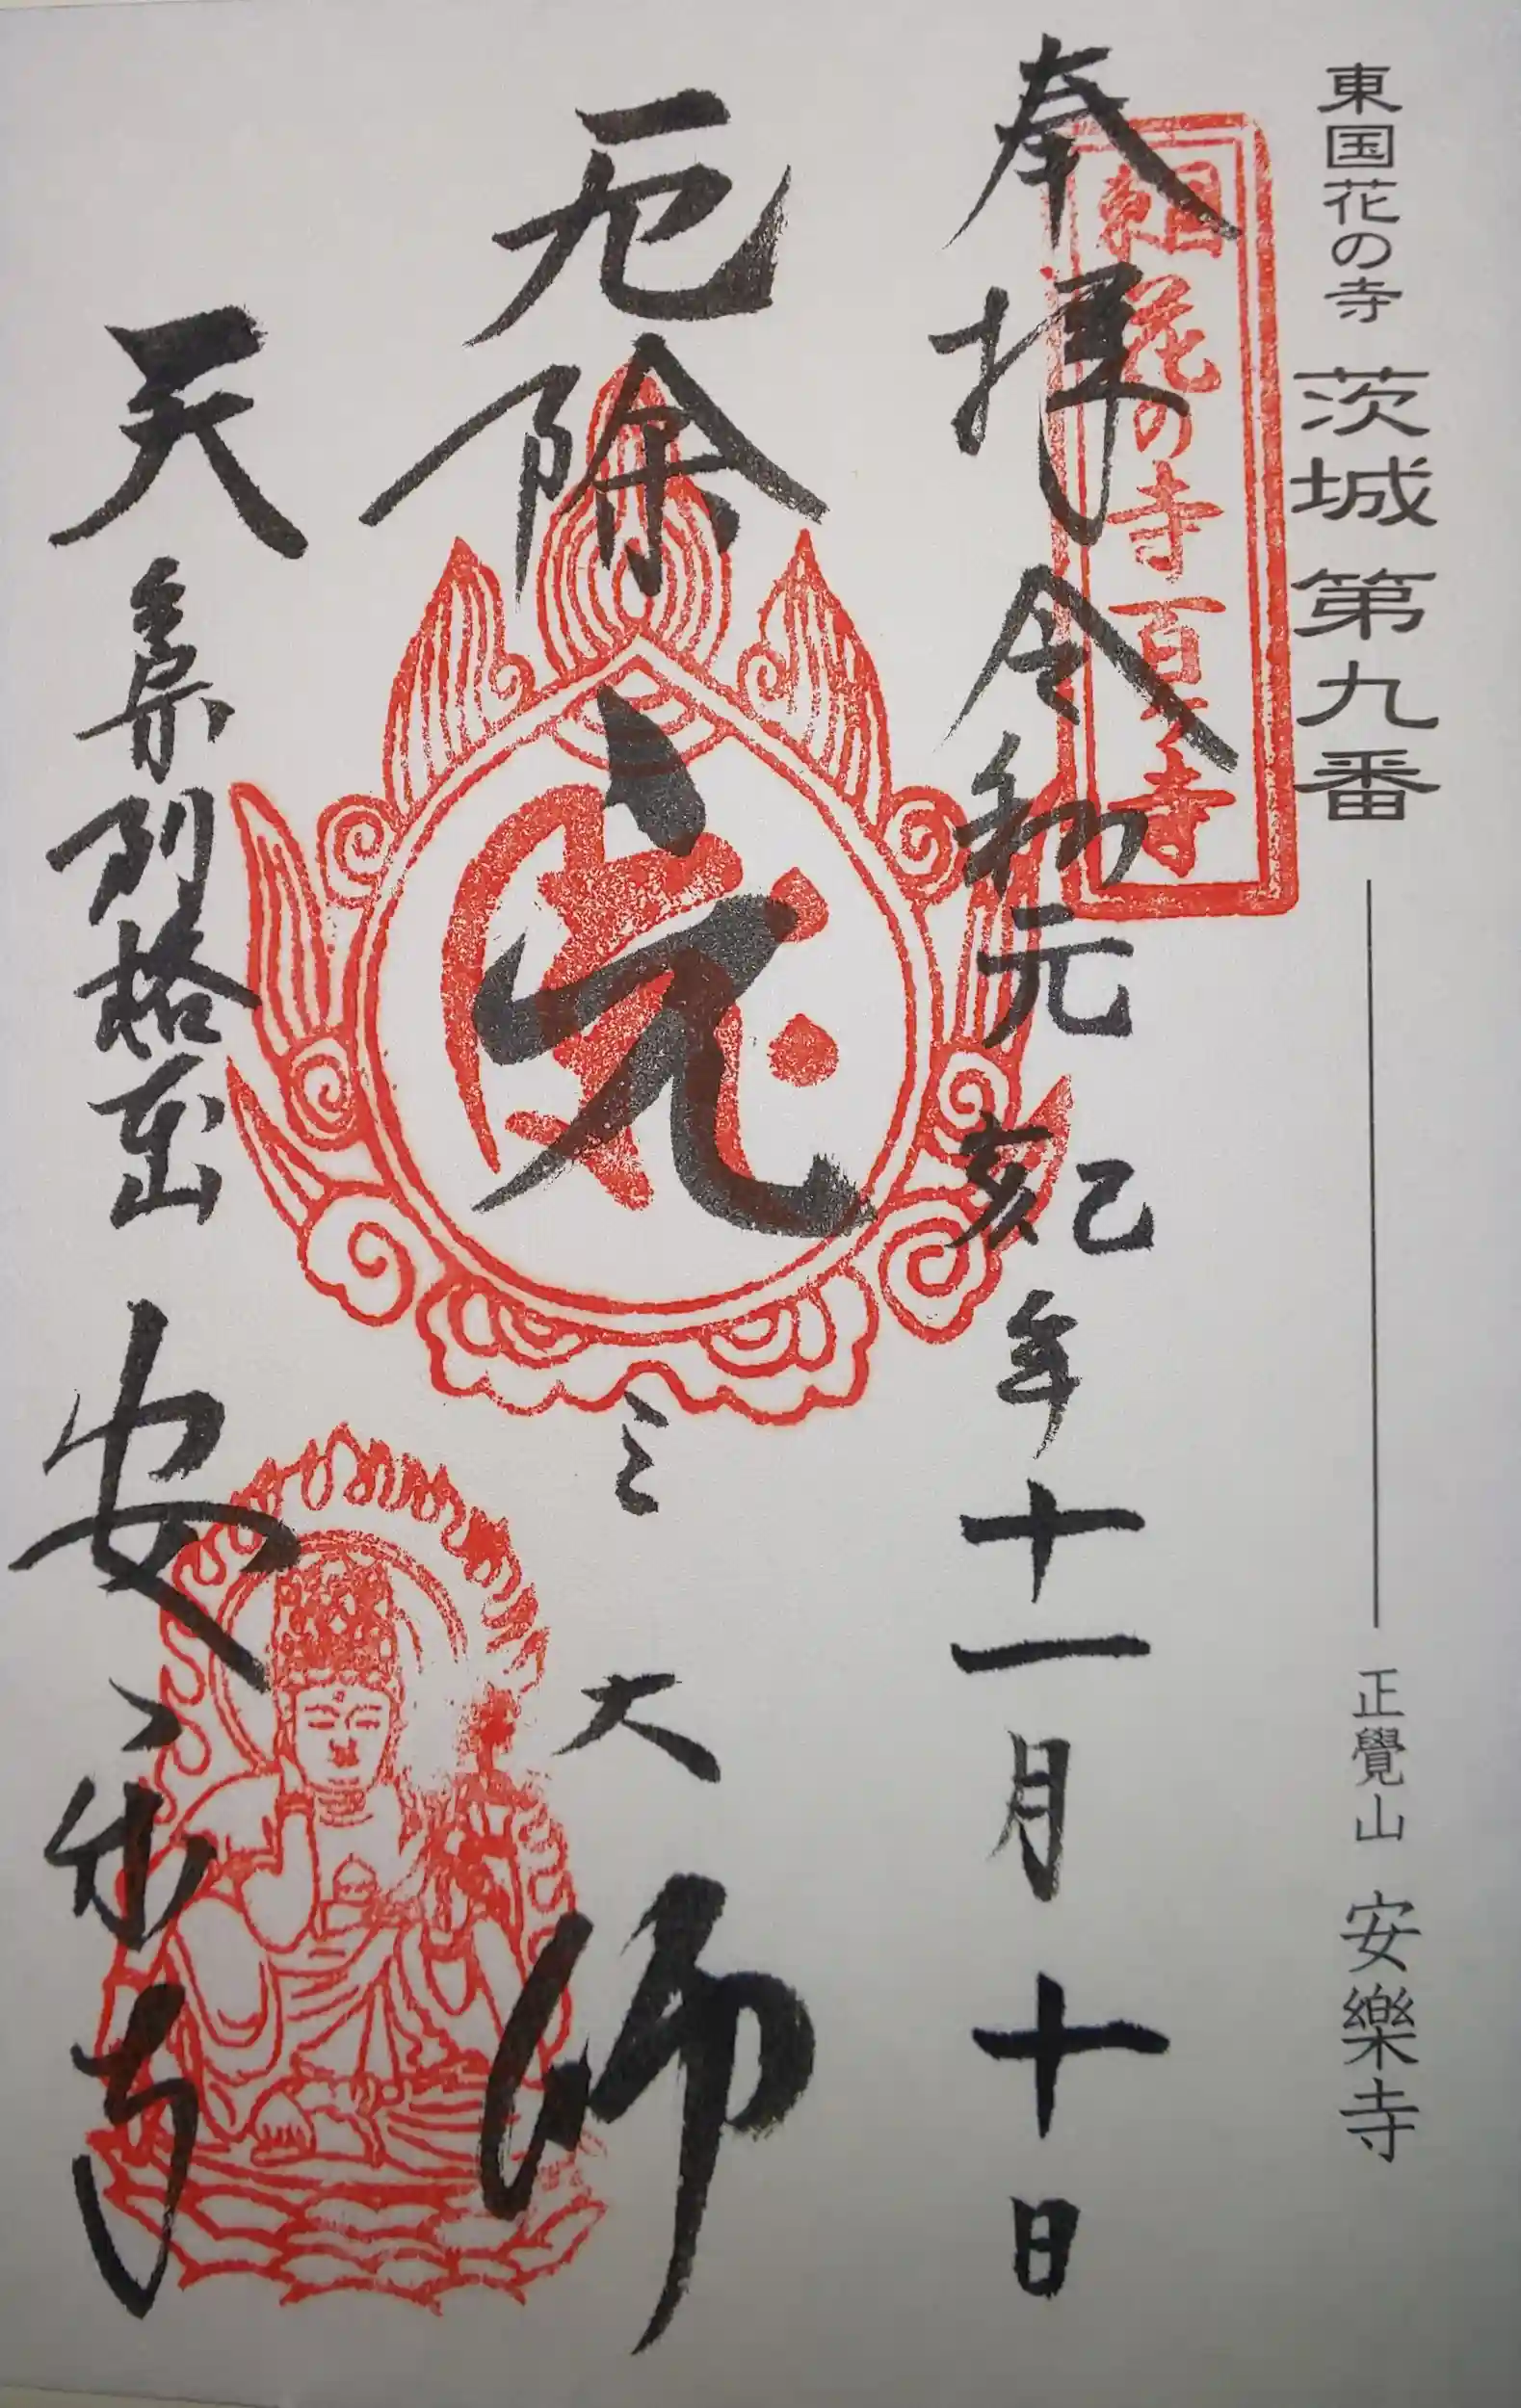 東国花の寺 茨城 第九番 正覺山 安樂寺
東国花の寺百ヶ寺
奉拝 令和元己亥年十一月十日
厄除 元三大師
天臺宗別格本山 安楽寺